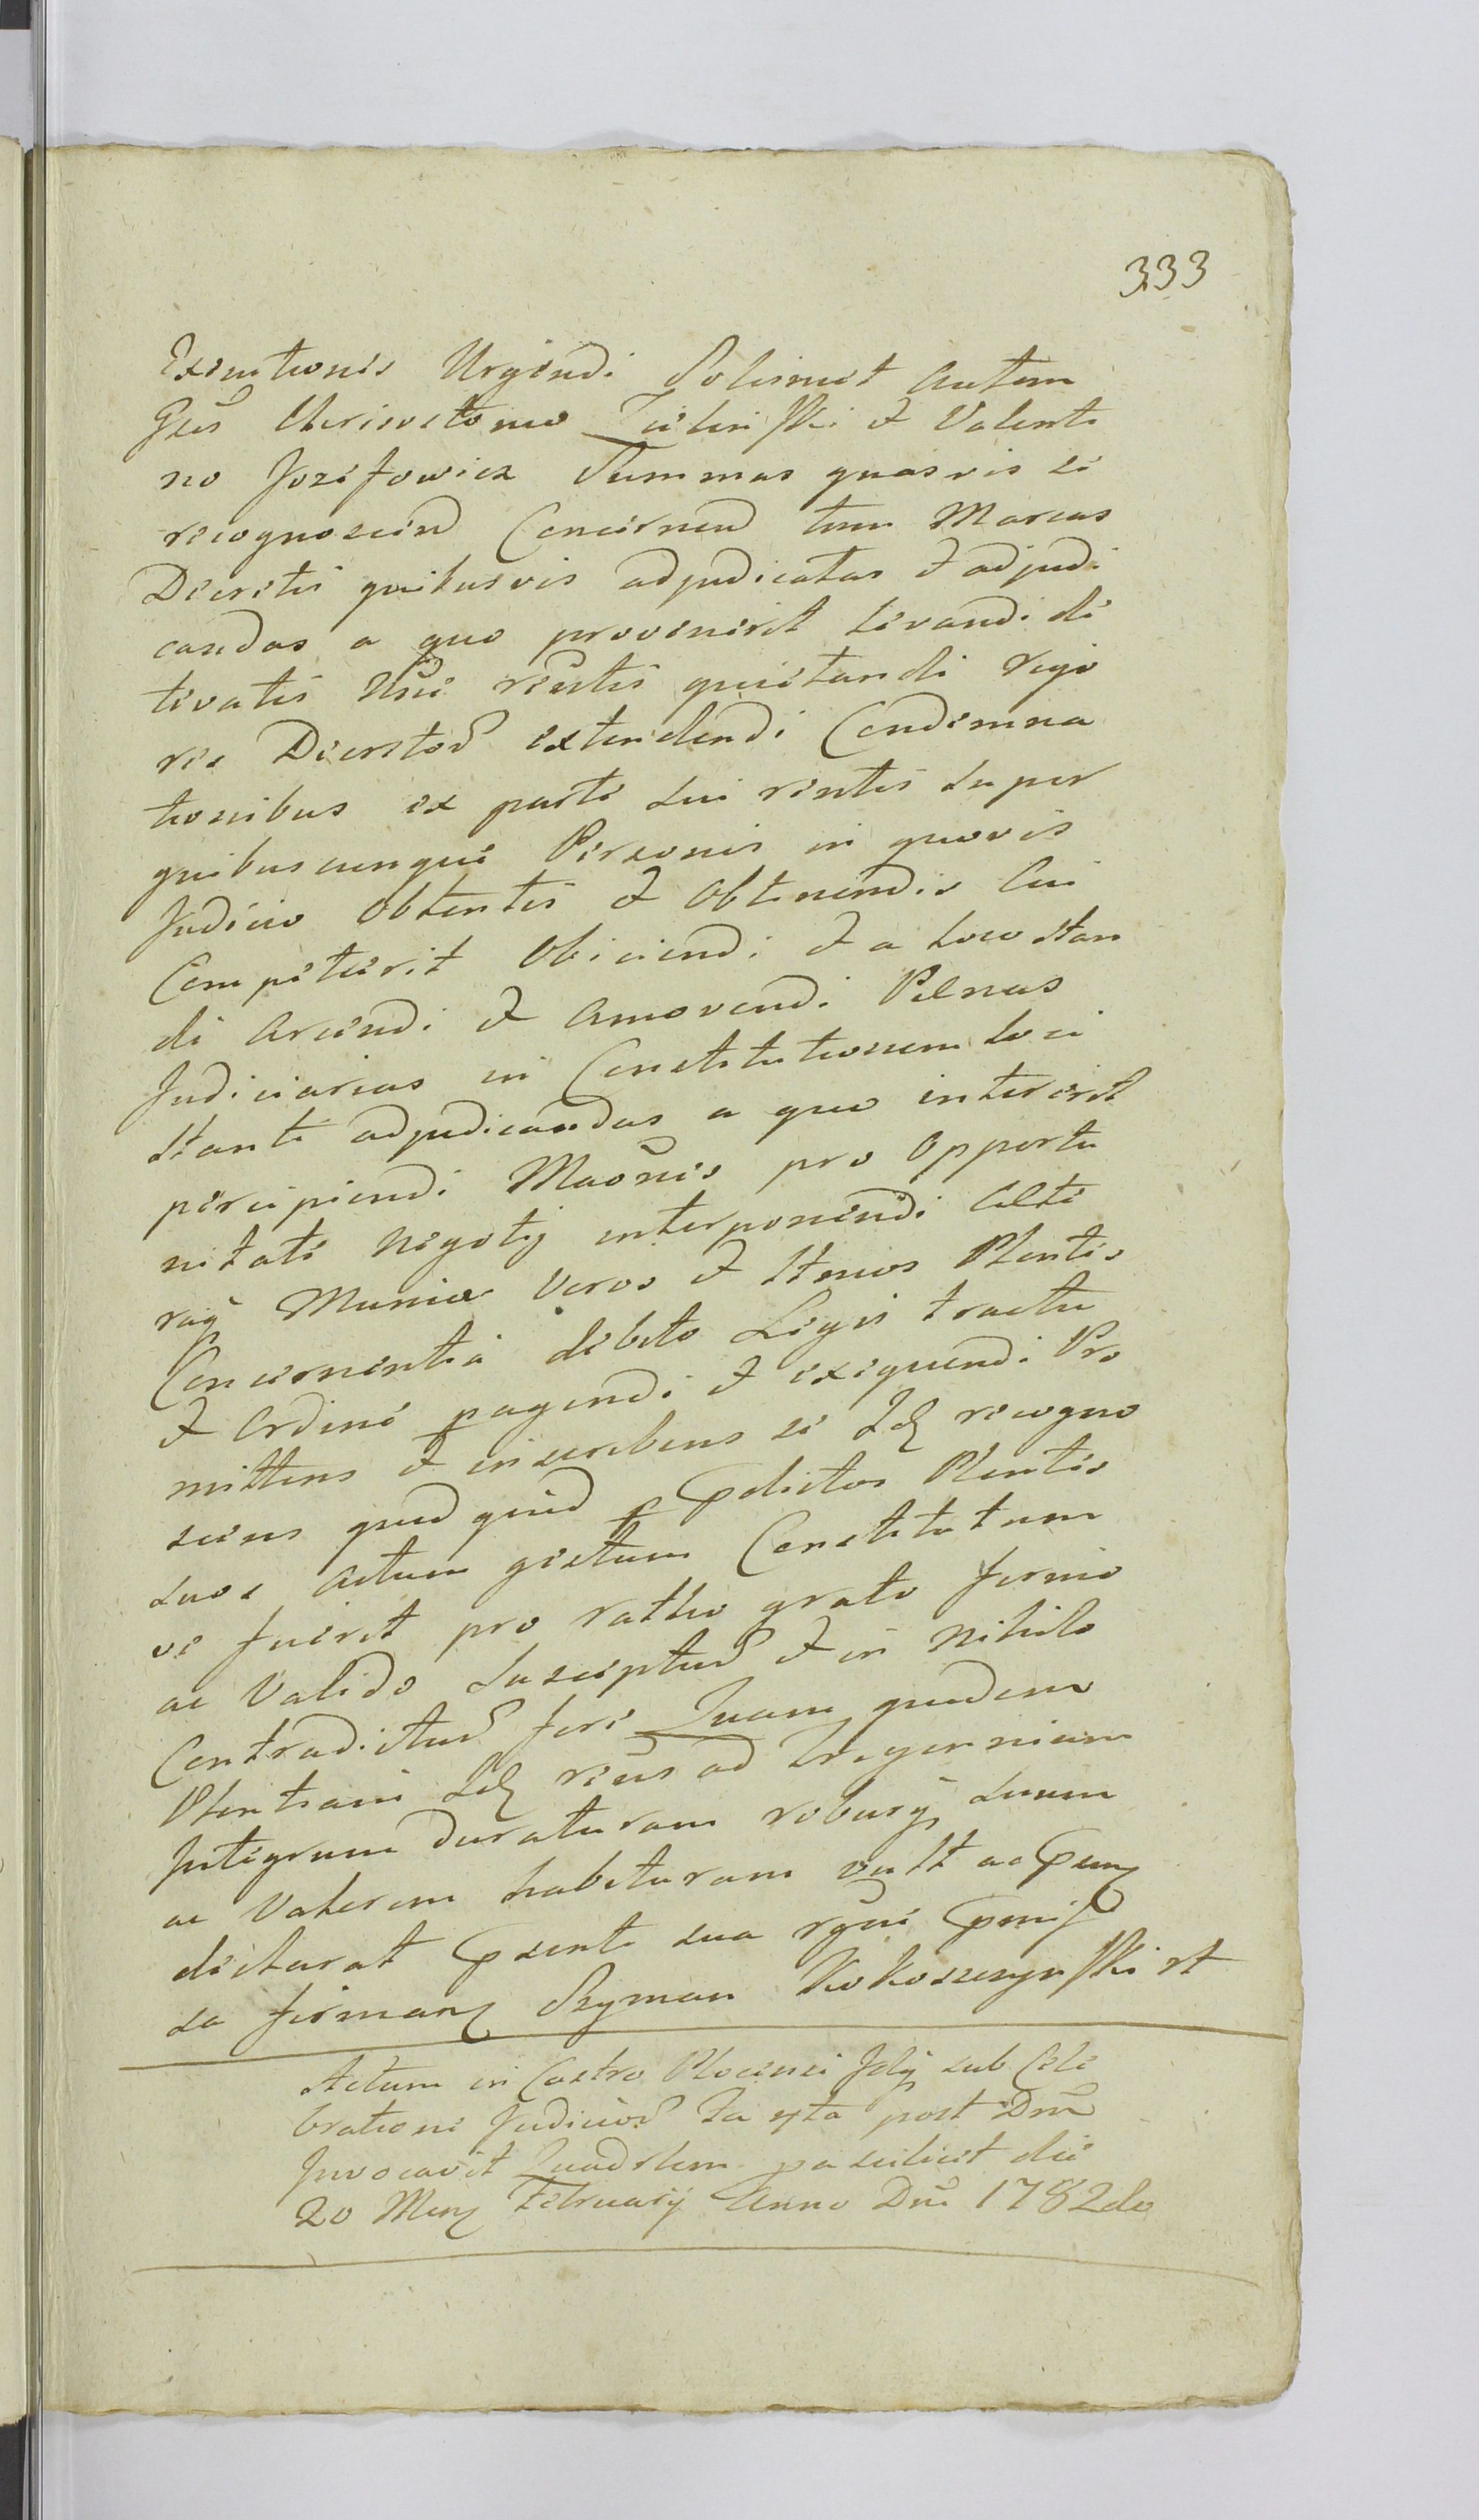 333
Exeuctionis Urgendi Solimet Autem
Gnis Chrisostomo Zielinski et Valenti
no Jozefowicz Summas quasvis se
recognoscend Concernend tum Marcas
Decretis quibusvis adjudicatas et adjudi
candas a quo provenerit Levandi de
levatis Nne rentis quietandi rigo
re Decretor extendendi Condemna
tionibus ex parte sui rentis super
quibuscunque Personis in quovis
Judicio Obtentis et Obtinendis Cui
Competierit Obiciendi et a loco stan
di Arcendi et Amovendi Pœnas
Judiciarias in Constitutionem loci
standi adjudicandas a quo intererit
percipiendi Maonis pro Opportu
nitate Negotij interponendi Cælte
raq Munia Veros et Stenos Plentes
Concernentia debito Legis tractu
et Ordine pagendi et exequendi Pro
mittens et inscribens se Idq recogno
scens quod quid p pdictos Plentes
suos Actum gestum Constitutum
ve fuerit pro ratho grato firmo
ac Valido Suscepturu et in Nihilo
Contradictur fore Quam quidem
Plentiam Idq rens ad Tregernium
Integrum duraturam roburq suum
ac Valorem habituram vult ac pnz
declarat psente sua rgne pmis
sa firmanz Szyman Kokoszczynski rt
Actum in Castro Plocensi fely sub Cele
bratione Judicior Fa 4ta post Dnm
Invocavit Quadrlem pa scilicet die
20 Menz February Anno Dni 1782do